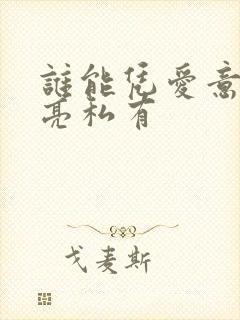 誰能凭愛意
亮私有
戈麦斯